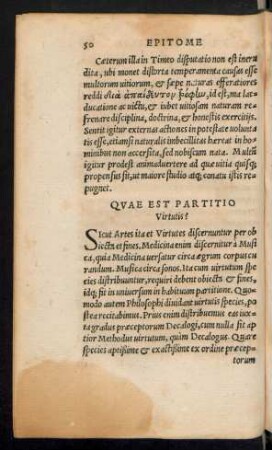 50 EPITOME
Cæterum illa in Timeo disputatio non est ineru
dita, ubi monet distorta temperamenta causas esse
multorum uitiorum, & sæpe naturas efferatiores
reddi διὰ ἀπαίδευτον τροφὴν, id est, malam
ducatione ac uictu, & iubet uitiosam naturam re
frenare disciplina, doctrina, & honestis exercitijs.
Sentit igitur externas actiones in potestate volunta
tis esse, etiamsi naturalis imbecillitas hæreat in ho
minibus non accersita, sed nobiscum nata. Multũ
igitur prodest animaduertere ad quæ uitia quisq;
propensus sit, ut maiore studio atq; conatu istis re
pugnet.
QVAE EST PARTITIO
Virtutis?
Sicut Artes ita et Virtutes discernuntur per ob
iecta et fines. Medicina enim discernitur à Musi
ca, quia Medicina uersatur circa ægrum corpus cu
randum. Musica circa sonos. Ita cum uirtutum spe
cies distribuuntur, requiri debent obiecta & fines,
idq; fit in uniuersum in habituum partitione. Quo-
modo autem Philosophi diuidant uirtutis species, po
stea recitabimus. Prius enim distribuemus eas iux-
ta gradus præceptorum Decalogi, cum nulla sit ap
tior Methodus uirtutum, quim Decalogus. Quare
species aptissime & exactissime ex ordine præcep-
torum